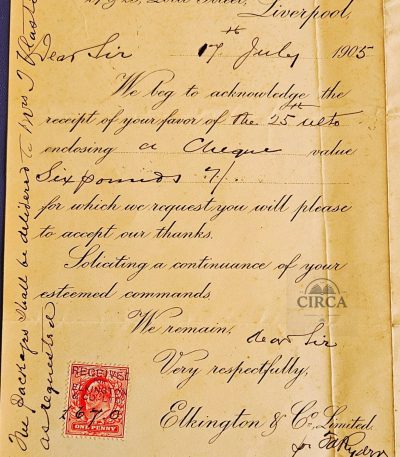 Lord Street,
Liverpool,
17th July 1905
Dear Sir
We beg to acknowledge the
receipt of your favor of the 25th ulto
enclosing a Cheque value
Six pounds 7/.
for which we request you will please
to accept our thanks.
Soliciting a continuance of your
esteemed commands
We remain,
Dear Sir
Very respectfully,
Elkington & Co. Limited.
The packages shall be delivered to Mrs T
as requested
CIRCA
RECEIVED
ONE PENNY